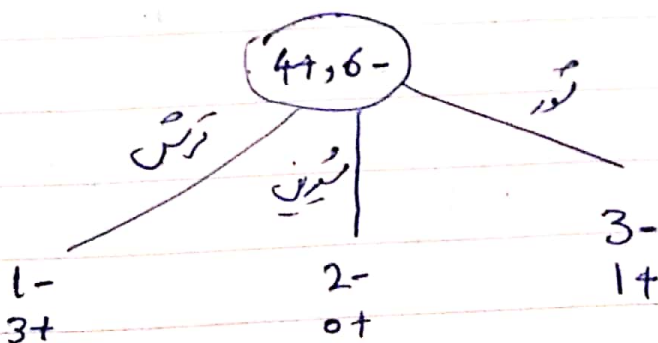 4+, 6-
ترش
شیرین
شور
1- 2- 3-
3+ 0+ 1+